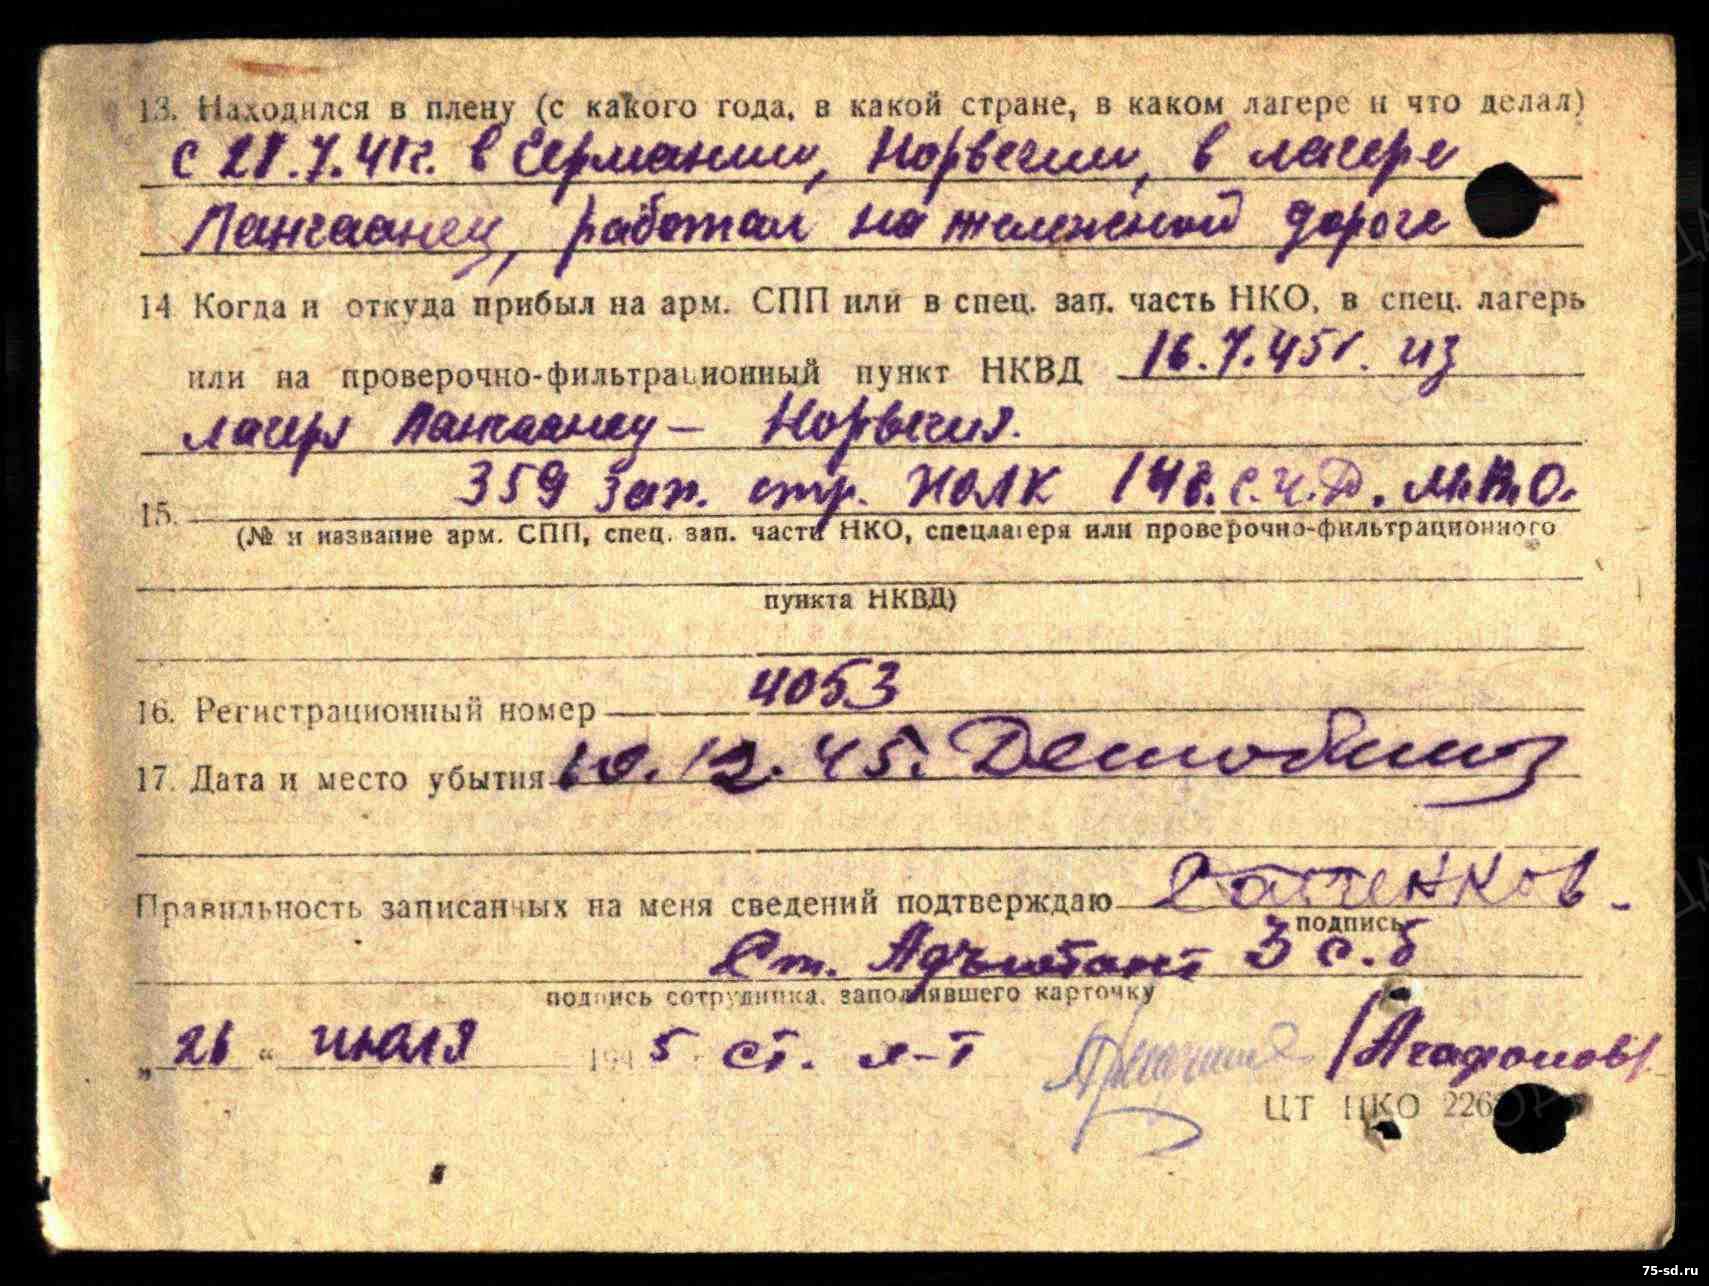 13. Находился в плену (с какого года, в какой стране, в каком лагере и что делал)
с 21.7.41г. в Германии, Норвегии, в лагере
Лангаанец, работал на железной дороге
14 Когда и откуда прибыл на арм. СПП или в спец. зап. часть НКО, в спец. лагерь
или на проверочно-фильтрационный пункт НКВД 16.7.45г. из
лагеря Лангаанец – Норвегия.
15. 359 Зап. стр. полк 14 с.Ч.Д. М.В.О.
(№ и название арм. СПП, спец. зап. части НКО, спецлагеря или проверочно-фильтрационного
пункта НКВД)
16. Регистрационный номер 4053
17. Дата и место убытия 10.12.45.
Правильность записанных на меня сведений подтверждаю Сатенков.
подпись
Ст. Адъютант 3 с.б
подпись сотрудника, заполнявшего карточку
„26“ июля 1945 ст. л-т /Агафонов/
ЦТ НКО 226
75-sd.ru